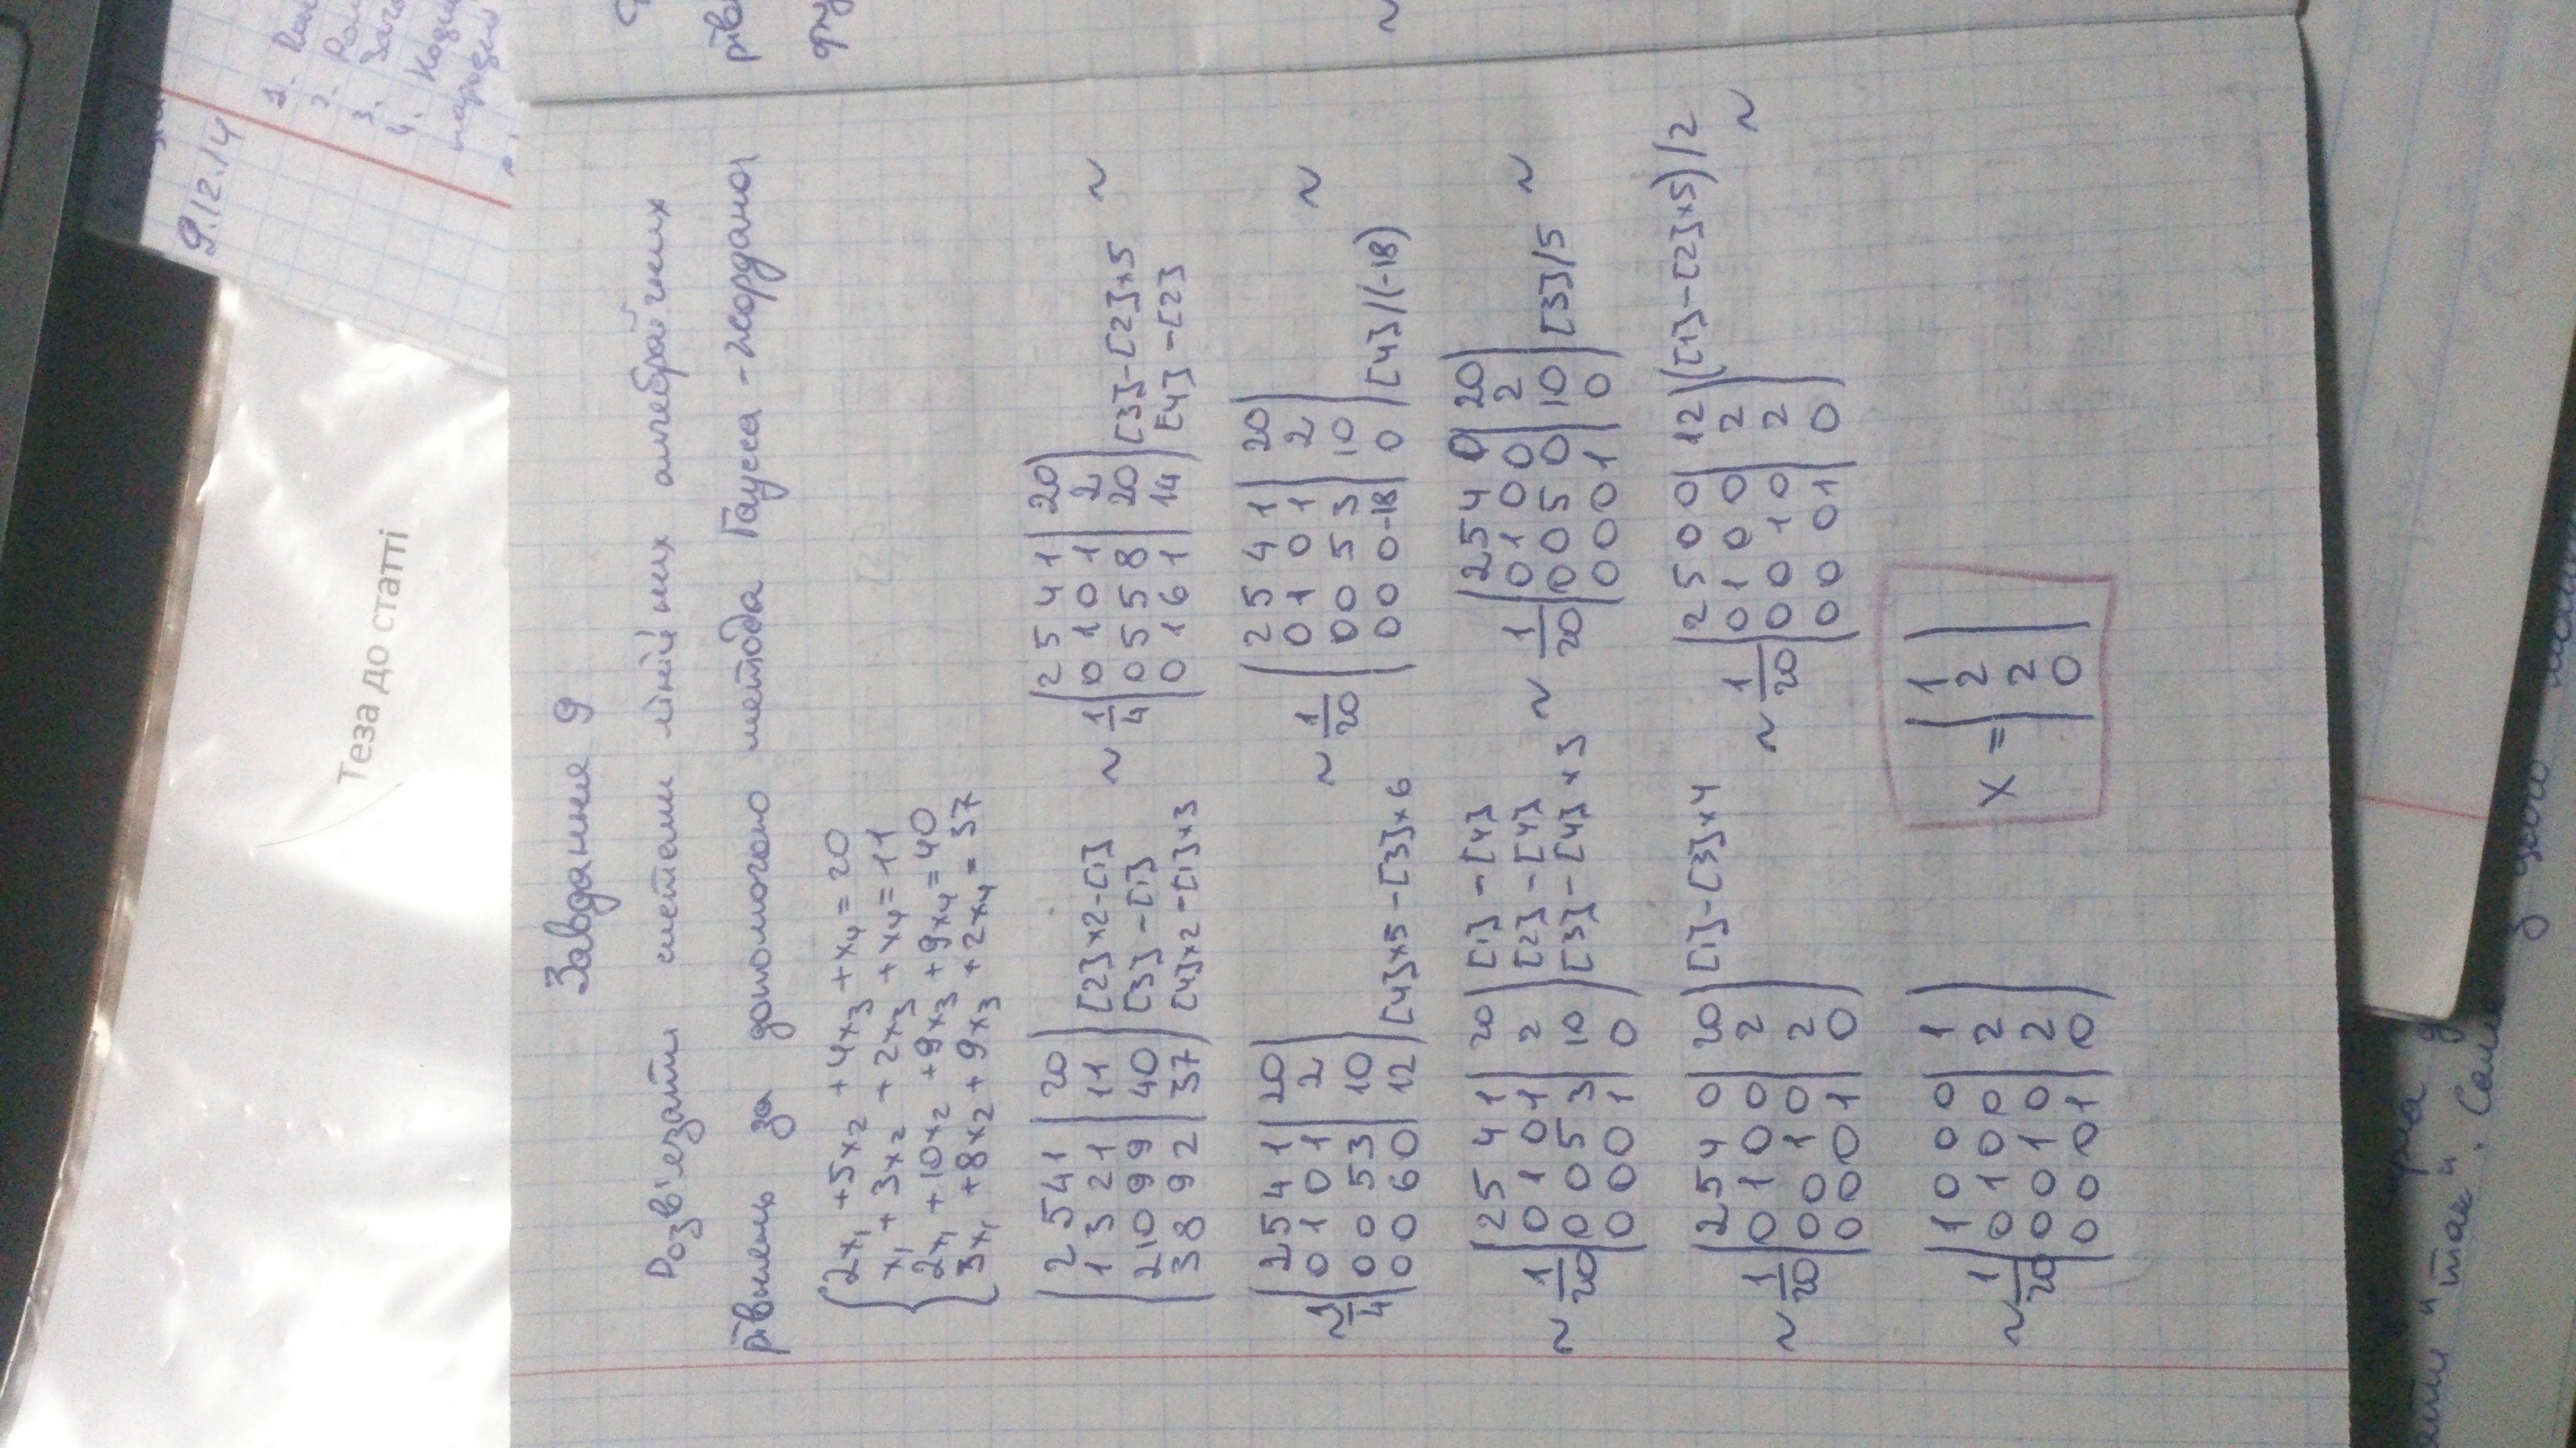 9.12.14
1.
2.
3.
4.
Теза до статті
Завдання 9
Розв'язати системи лінійних алгебраїчних
рівнянь за допомогою метода Гаусса - Жордана
2x₁ + 5x₂ + 4x₃ + x₄ = 20
x₁ + 3x₂ + 2x₃ + x₄ = 11
2x₁ + 10x₂ + 9x₃ + 9x₄ = 40
3x₁ + 8x₂ + 9x₃ + 2x₄ = 37
2 5 4 1 | 20
1 3 2 1 | 11 [2]×2-[1]
2 10 9 9 | 40 [3]-[1]
3 8 9 2 | 37 [4]×2-[1]×3
~ 1/4
2 5 4 1 | 20
0 1 0 1 | 2
0 5 5 8 | 20 [3]-[2]×5
0 1 6 1 | 14 [4]-[2]
~
~ 1/4
2 5 4 1 | 20
0 1 0 1 | 2
0 0 5 3 | 10
0 0 6 0 | 12 [4]×5-[3]×6
~ 1/20
2 5 4 1 | 20
0 1 0 1 | 2
0 0 5 3 | 10
0 0 0 -18 | 0 [4]/(-18)
~
~ 1/20
2 5 4 1 | 20 [1]-[4]
0 1 0 1 | 2 [2]-[4]
0 0 5 3 | 10 [3]-[4]×3
0 0 0 1 | 0
~ 1/20
2 5 4 0 | 20
0 1 0 0 | 2
0 0 5 0 | 10 [3]/5
0 0 0 1 | 0
~
~ 1/20
2 5 4 0 | 20 [1]-[3]×4
0 1 0 0 | 2
0 0 1 0 | 2
0 0 0 1 | 0
~ 1/20
2 5 0 0 | 12 ([1]-[2]×5)/2
0 1 0 0 | 2
0 0 1 0 | 2
0 0 0 1 | 0
~
~ 1/20
1 0 0 0 | 1
0 1 0 0 | 2
0 0 1 0 | 2
0 0 0 1 | 0
X =
1
2
2
0
"так". Саме з цього